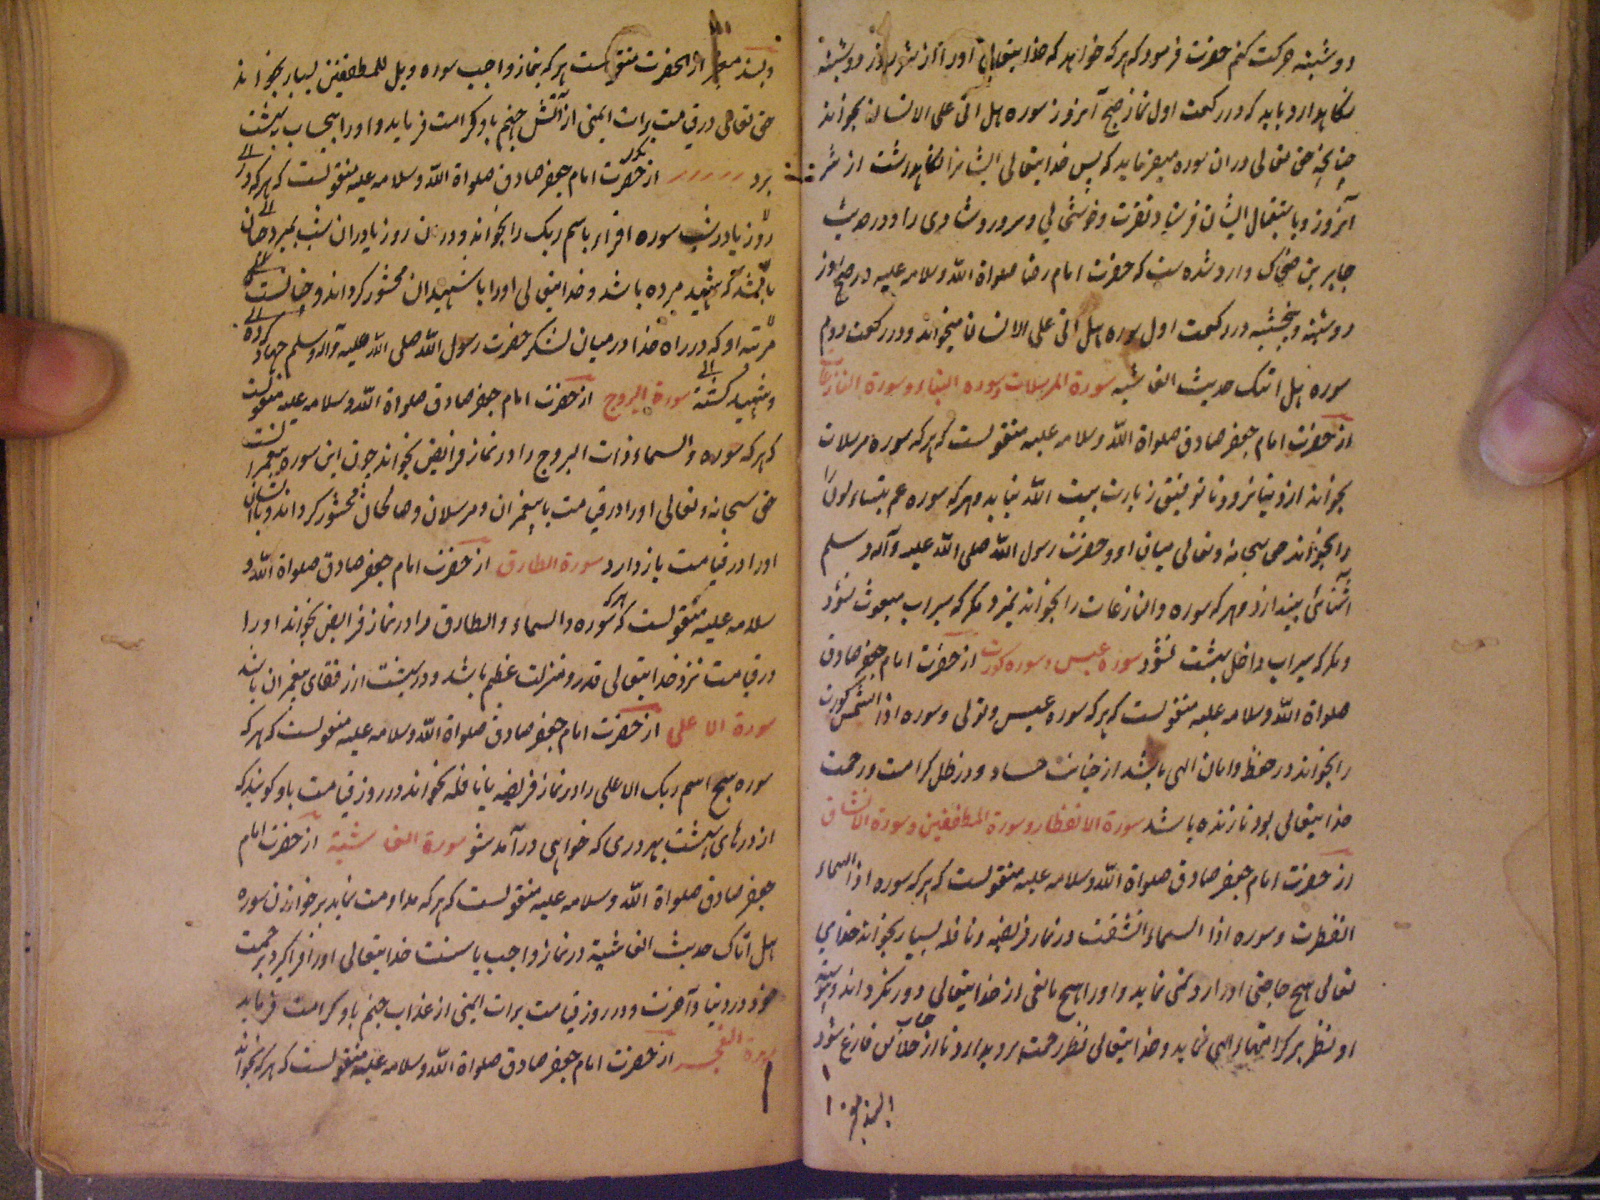 دوشنبه حرکت کنم حضرت فرمود که هر که خواهد که خدایتعالی او را از شر روز دوشنبه
نگاهدارد باید که در رکعت اول نماز صبح آنروز سوره هل اتی علی الانسان بخواند
چنانچه حق تعالی در ان سوره میفرماید که پس خدایتعالی ایشانرا نگاهداشت از شر
آنروز و باستقبال ایشان فرستاد نضرت و خوشحالی و سرور و شادی را و در حدیث
جابر بن ضحاک وارد شده ست که حضرت امام رضا صلواة الله وسلامه علیه در صبح روز
دوشنبه و پنجشنبه در رکعت اول سوره هل اتی علی الانسان میخواند و در رکعت دوم
سوره هل اتیک حدیث الغاشیه سورة المرسلات وسوره النباء وسورة النازعات
از حضرت امام جعفر صادق صلواة الله وسلامه علیه منقولست که هر که سوره مرسلات
بخواند از دنیا نرود تا توفیق زیارت بیت الله نیابد و هر که سوره عم یتساءلون
را بخواند حق سبحانه و تعالی میان او و حضرت رسول الله صلی الله علیه وآله وسلم
آشنائی بیندازد و هر که سوره والنازعات را بخواند نمیرد مگر که سیراب مبعوث نشود
ومگر که سیراب داخل بهشت نشود سوره عبس وسوره کورت از حضرت امام جعفر صادق
صلواة الله وسلامه علیه منقولست که هر که سوره عبس وتولی وسوره اذا الشمس کورت
را بخواند در حفظ وامان الهی باشد از خیانت حساد و در ظل کرامت و رحمت
خدایتعالی بود تا زنده باشد سورة الانفطار وسورة المطففین وسورة الانشقاق
از حضرت امام جعفر صادق صلواة الله وسلامه علیه منقولست که هر که سوره اذا السماء
انفطرت وسوره اذا السماء انشقت در نماز فریضه ونافله بسیار بخواند خدای
تعالی هیچ حاجتی او را رد نمی نماید و او را هیچ مانعی از خدایتعالی دور نگرداند و پیوسته
او نظر بر کرامتهاء الهی نماید و خدایتعالی نظر رحمت برو بدارد تا از حساب خلائق فارغ شود
و بسند معتبر از آنحضرت منقولست هر که بنماز واجب سوره ویل للمطففین بسیار بخواند
حق تعالی در قیامت برات ایمنی از آتش جهنم باو کرامت فرماید و او را بیحساب ببهشت
برد از حضرت امام جعفر صادق صلواة الله وسلامه علیه منقولست که هر که در
روز یا در شب سوره اقراء باسم ربک را بخواند و در آن روز یا در ان شب بمیرد چنان
باشد که شهید مرده باشد و خدایتعالی او را با شهیدان محشور گرداند و چنانست
مرتبه او که در راه خدا در میان لشکر حضرت رسول الله صلی الله علیه وآله وسلم جهاد کرده
وشهید گشته سورة البروج از حضرت امام جعفر صادق صلواة الله وسلامه علیه منقولست
که هر که سوره والسماء ذات البروج را در نماز فرایض بخواند چون این سوره پیغمبرانست
حق سبحانه و تعالی او را در قیامت با پیغمبران و مرسلان و صالحان محشور گرداند و با ایشان
او را در قیامت باز دارد سورة الطارق از حضرت امام جعفر صادق صلواة الله و
سلامه علیه منقولست که هر که سوره والسماء والطارق را در نماز فرایض بخواند او را
در قیامت نزد خدایتعالی قدر و منزلت عظیم باشد و در بهشت از رفقای پیغمبران باشد
سورة الاعلی از حضرت امام جعفر صادق صلواة الله وسلامه علیه منقولست که هر که
سوره سبح اسم ربک الاعلی را در نماز فریضه یا نافله بخواند در روز قیامت باو گویند که
از درهای بهشت بهر دری که خواهی در آمده شو سورة الغاشیة از حضرت امام
جعفر صادق صلواة الله وسلامه علیه منقولست که هر که مداومت نماید بر خواندن سوره
هل اتاک حدیث الغاشیة در نماز واجب یا سنت خدایتعالی او را فرا گیرد برحمت
خود در دنیا و آخرت و در روز قیامت برات ایمنی از عذاب جهنم باو کرامت فرماید
سورة الفجر از حضرت امام جعفر صادق صلواة الله وسلامه علیه منقولست که هر که بخواند